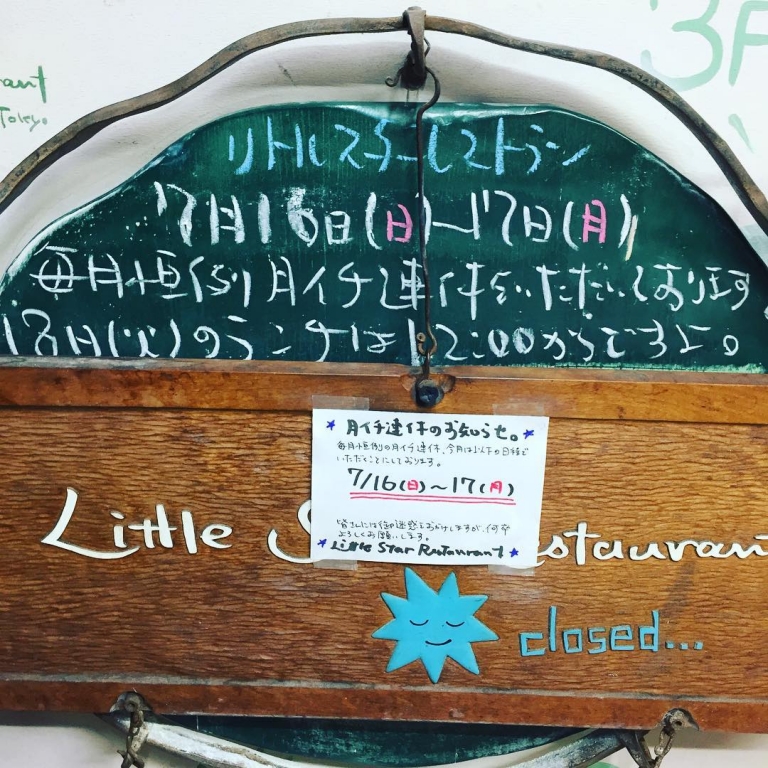 rant
Tokyo.
3F
リトルスターレストラン
7月16日(日)～17日(月)
毎月恒例月イチ連休をいただいております
18日(火)のランチは12:00からですよ。
月イチ連休のお知らせ。
毎月恒例の月イチ連休、今月は以下の日程で
いただくことにしております。
7/16(日)～17(月)
皆さんには御迷惑をおかけしますが、何卒
よろしくお願いします。
Little Star Restaurant
Little S estaurant
closed...